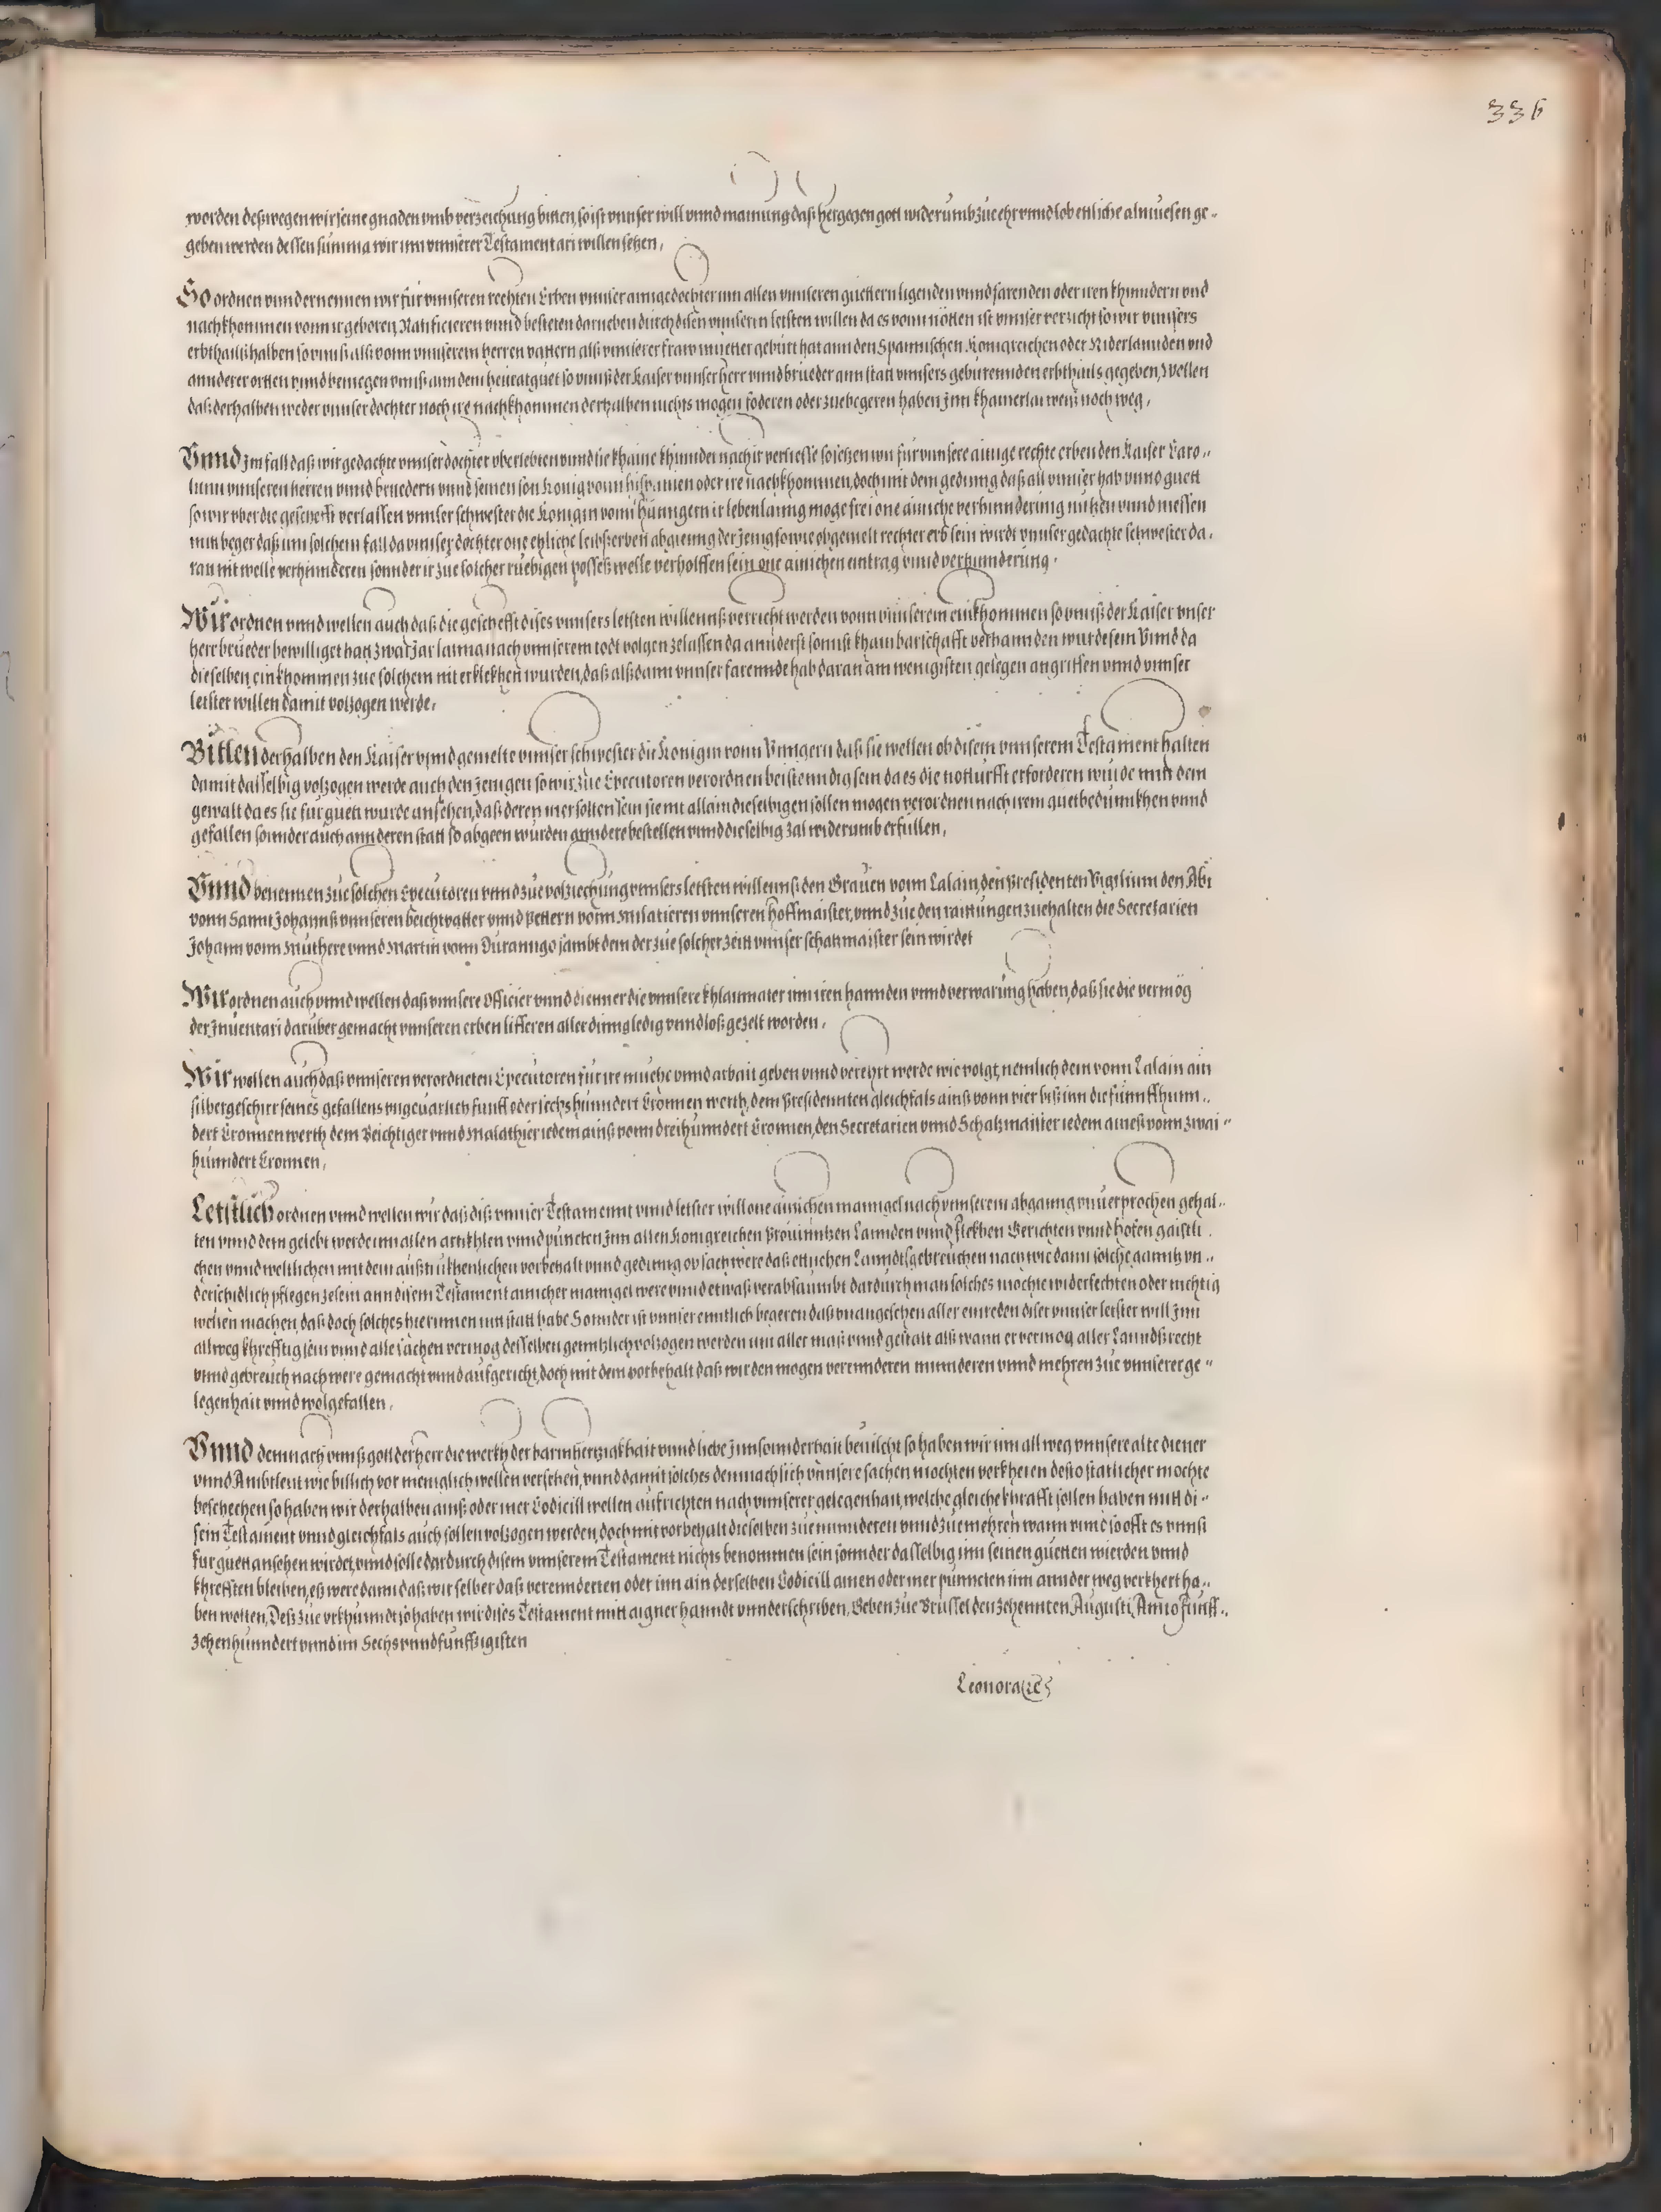 336
worden deßwegen wir seine gnaden vmb verzeichung bitten, so ist vnnser will vnnd mainung daß hergegen gott widerumb zue ehr vnnd lob ettliche almuesen ge„
geben werden dessen summa wir inn vnnserer Testamentari willen setzen,
So ordnen vnnd ernennen wir für vnnseren rechten Erben vnnser ainige dochter inn allen vnnseren guettern ligenden vnnd farenden oder iren khinndern vnd
nachkhommen vonn ir geboren, Ratificieren vnnd besteten darneben durch disen vnnserm letsten willen da es vonn nötten ist vnnser verzicht so wir vnnsers
erbthailß halben so vnnß alß vonn vnnserem herren vattern alß vnnserer fraw muetter gebürt hat ann den Spannischen Königreichen oder Niderlannden vnd
annderer orten vnnd benuegen vnnß ann dem heüratguet so vnnß der Kaiser vnnser herr vnnd brueder ann statt vnnsers gebürennden erbthails gegeben, Wellen
daß derhalben weder vnnser dochter noch ire nachkhommen derhalben nichts mogen foderen oder zue begeren haben Inn khainerlai weiß noch weg,
Vnnd Im fall daß wir gedachte vnnser dochter vberlebten vnnd sie khaine khinnder nach ir verliesse so setzen wir für vnnsere ainige rechte erben den Kaiser Caro„
lum vnnseren herren vnnd bruedern vnnd seinen son König vonn hispanien oder ire nachkhommen, doch mit dem geding daß all vnnser hab vnnd guett
so wir vber die gescheft verlassen vnnser schwester die Königin vonn Hunngern ir lebenlanng moge frei one ainiche verhinnderung nutzen vnnd niessen
mit beger daß inn solchem fall da vnnser dochter one ehliche leibßerben abgienng der Jenig so wie obgemelt rechter erb sein wirdt vnnser gedachte schwester da„
ran nit welle verhinnderen sonnder ir zue solcher ruebigen posseß welle verholffen sein one ainichen eintrag vnnd verhinnderung.
Wir ordnen vnnd wellen auch daß die gescheft dises vnnsers letsten willennß verricht werden vonn vnnserem einkhommen so vnnß der Kaiser vnser
herr brueder bewilliget hatt zwai Jar lanng nach vnnserem todt volgen zelassen da annderst sonnst khain barschafft verhannden wurde sein Vnnd da
dieselben einkhommen zue solchem nit erklekhen wurden, daß alßdann vnnser farennde hab daran am wenigisten gelegen angriffen vnnd vnnser
letster willen damit volzogen werde,
Bitten derhalben den Kaiser vnnd gemelte vnnser schwester die Königin vonn Vnngern daß sie wellen ob disem vnnserem Testament halten
damit dasselbig volzogen werde auch den Jenigen so wir zue Executoren verordnen beistenndig sein da es die notturfft erforderen wurde mitt dem
gewalt da es sie für guett wurde ansehen, daß deren mer solten sein sie nit allain dieselbigen sollen mogen verordnen nach irem guetbedunnkhen vnnd
gefallen sonnder auch annderen statt so abgeen wurden anndere bestellen vnnd dieselbig zal widerumb erfullen,
Vnnd benennen zue solchen Executoren vnnd zue volziechung vnnsers letsten willennß den Grauen vonn Lalain, den Presidenten Vigilium den Abt
vonn Sannt Johannß vnnseren beichtvatter vnnd Pettern vonn Malatieren vnnseren hoffmaister, vnnd zue den raittungen zuehalten die Secretarien
Johann vonn Muthere vnnd Martin vonn Duranngo sambt dem der zue solcher zeitt vnnser schatzmaister sein wirdet
Wir ordnen auch vnnd wellen daß vnnsere Officier vnnd dienner die vnnsere khlainnater inn iren hannden vnnd verwarung haben, daß sie die vermög
der Inuentari darüber gemacht vnnseren erben lifferen aller dinng ledig vnnd loß gezelt worden,
Wir wollen auch daß vnnseren verordneten Executoren für ire muehe vnnd arbait geben vnnd verehrt werde wie volgt, nemlich dem vonn Lalain ain
silbergeschirr seines gefallens vngeuarlich funff oder sechs hunndert Cronnen werth, dem Presidennten gleichfals ainß vonn vier biß inn die fünnffhunn„
dert Cronnen werth dem Beichtiger vnnd Malathier iedem ainß vonn dreihunndert Cronnen, den Secretarien vnnd Schatzmaister iedem aineß vonn zwai„
hunndert Cronnen,
Letstlich ordnen vnnd wellen wir daß diß vnnser Testamennt vnnd letster will one ainichen manngel nach vnnserem abganng vnuerprochen gehal„
ten vnnd dem gelebt werde inn allen artikhlen vnnd puncten Inn allen Konigreichen Prouinntzen Lannden vnnd flekhen Gerichten vnnd höfen gaistli„
chen vnnd weltlichen mit dem außtrukhenlichen vorbehalt vnnd geding ob sach were daß ettlichen Lanndtsgebreuchen nach wie dann solche ganntz vn„
derschidlich pflegen ze sein ann disem Testament ainicher manngel were vnnd etwaß verabsaumbt dardurch man solches mochte widerfechten oder nichtig
wellen machen, daß doch solches hierinnen nit statt habe Sonnder ist vnnser enntlich begeren daß vnangesehen aller einreden diser vnnser letster will Inn
allweg khrefftig sein vnnd alle sachen vermog desselben genntzlich volzogen werden inn aller maß vnnd gestalt alß wann er vermog aller Lanndß recht
vnnd gebreuch nach were gemacht vnnd aufgericht, doch mit dem vorbehalt daß wir den mogen verennderen minnderen vnnd mehren zue vnnserer ge„
legenhait vnnd wolgefallen,
Vnnd demnach vnnß gott der herr die werkh der barmhertzigkhait vnnd liebe Inn sonnderhait beuilcht so haben wir inn allweg vnnsere alte diener
vnnd Ambtleut wie billich vor meniglich wellen versehen, vnnd damit solches demnach sich vnnsere sachen mochten verkheren desto statlicher mochte
beschechen so haben wir derhalben ainß oder mer Codicill wellen aufrichten nach vnnserer gelegenhait, welche gleiche khrafft sollen haben mitt di„
sem Testament vnnd gleichfals auch sollen volzogen werden, doch mit vorbehalt dieselben zue minnderen vnnd zue mehren wann vnnd so offt es vnnß
fur guett ansehen wirdet, vnnd solle dardurch disem vnnserem Testament nichts benommen sein sonnder dasselbig inn seinen guetten wierden vnnd
khrefften bleiben, eß were dann daß wir selber daß verennderten oder inn ain derselben Codicill ainen oder mer punncten inn annder weg verkhert ha„
ben wolten, Deß zue vrkhunndt so haben wir dises Testament mitt aigner hanndt vnnderschriben, Geben zue Brussel den zehennten Augusti, Anno funff„
zehenhunndert vnnd im Sechs vnnd funffzigisten
Leonora